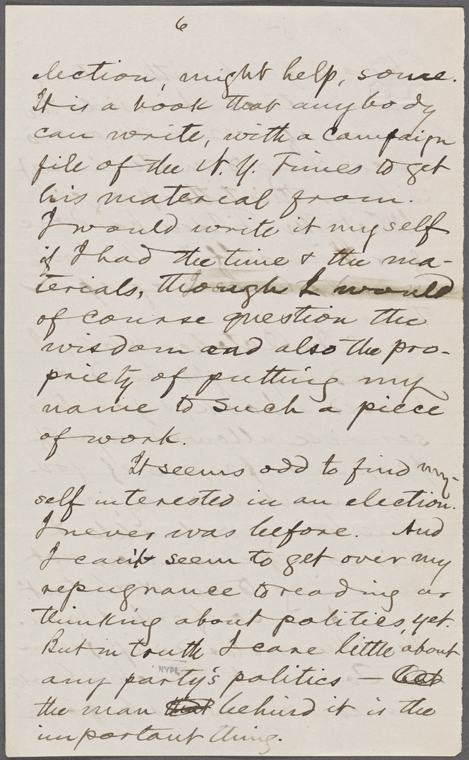 6
election, might help, some.
It is a book that anybody
can write, with a campaign
file of the N. Y. Times to get
his material from.
I would write it myself
if I had the time & the ma-
terials, though I would
of course question the
wisdom and also the pro-
priety of putting my
name to such a piece
of work.
It seems odd to find my-
self interested in an election.
I never was before. And
I can't seem to get over my
repugnance to reading or
thinking about politics, yet.
But in truth I care little about
any party's politics —
NYPL
the man behind it is the
important thing.